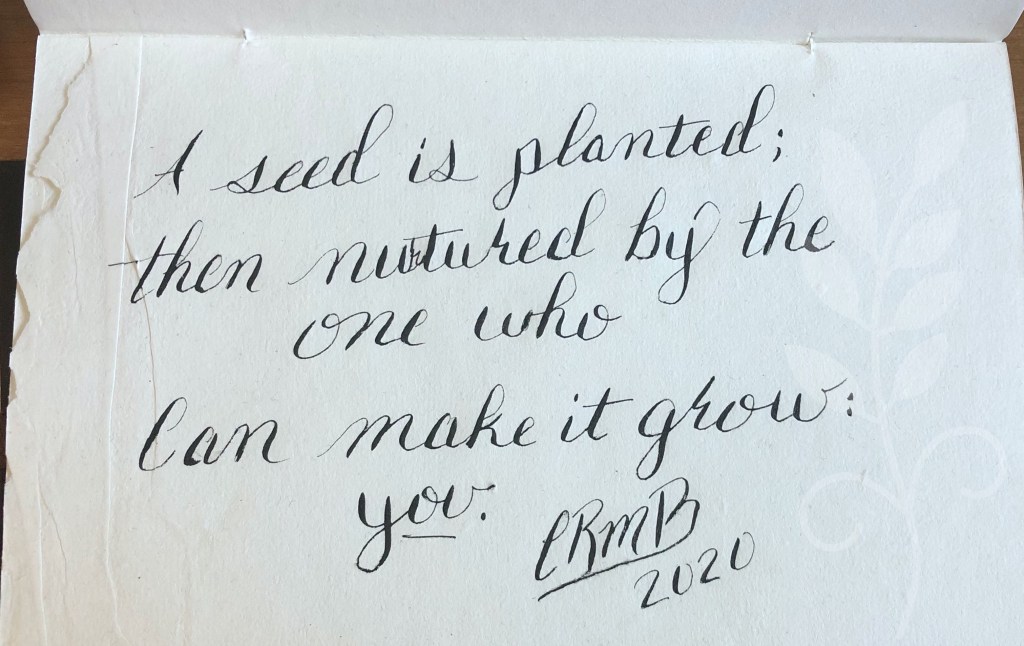 A seed is planted;
then nurtured by the
one who
Can make it grow:
you.
CRMB
2020